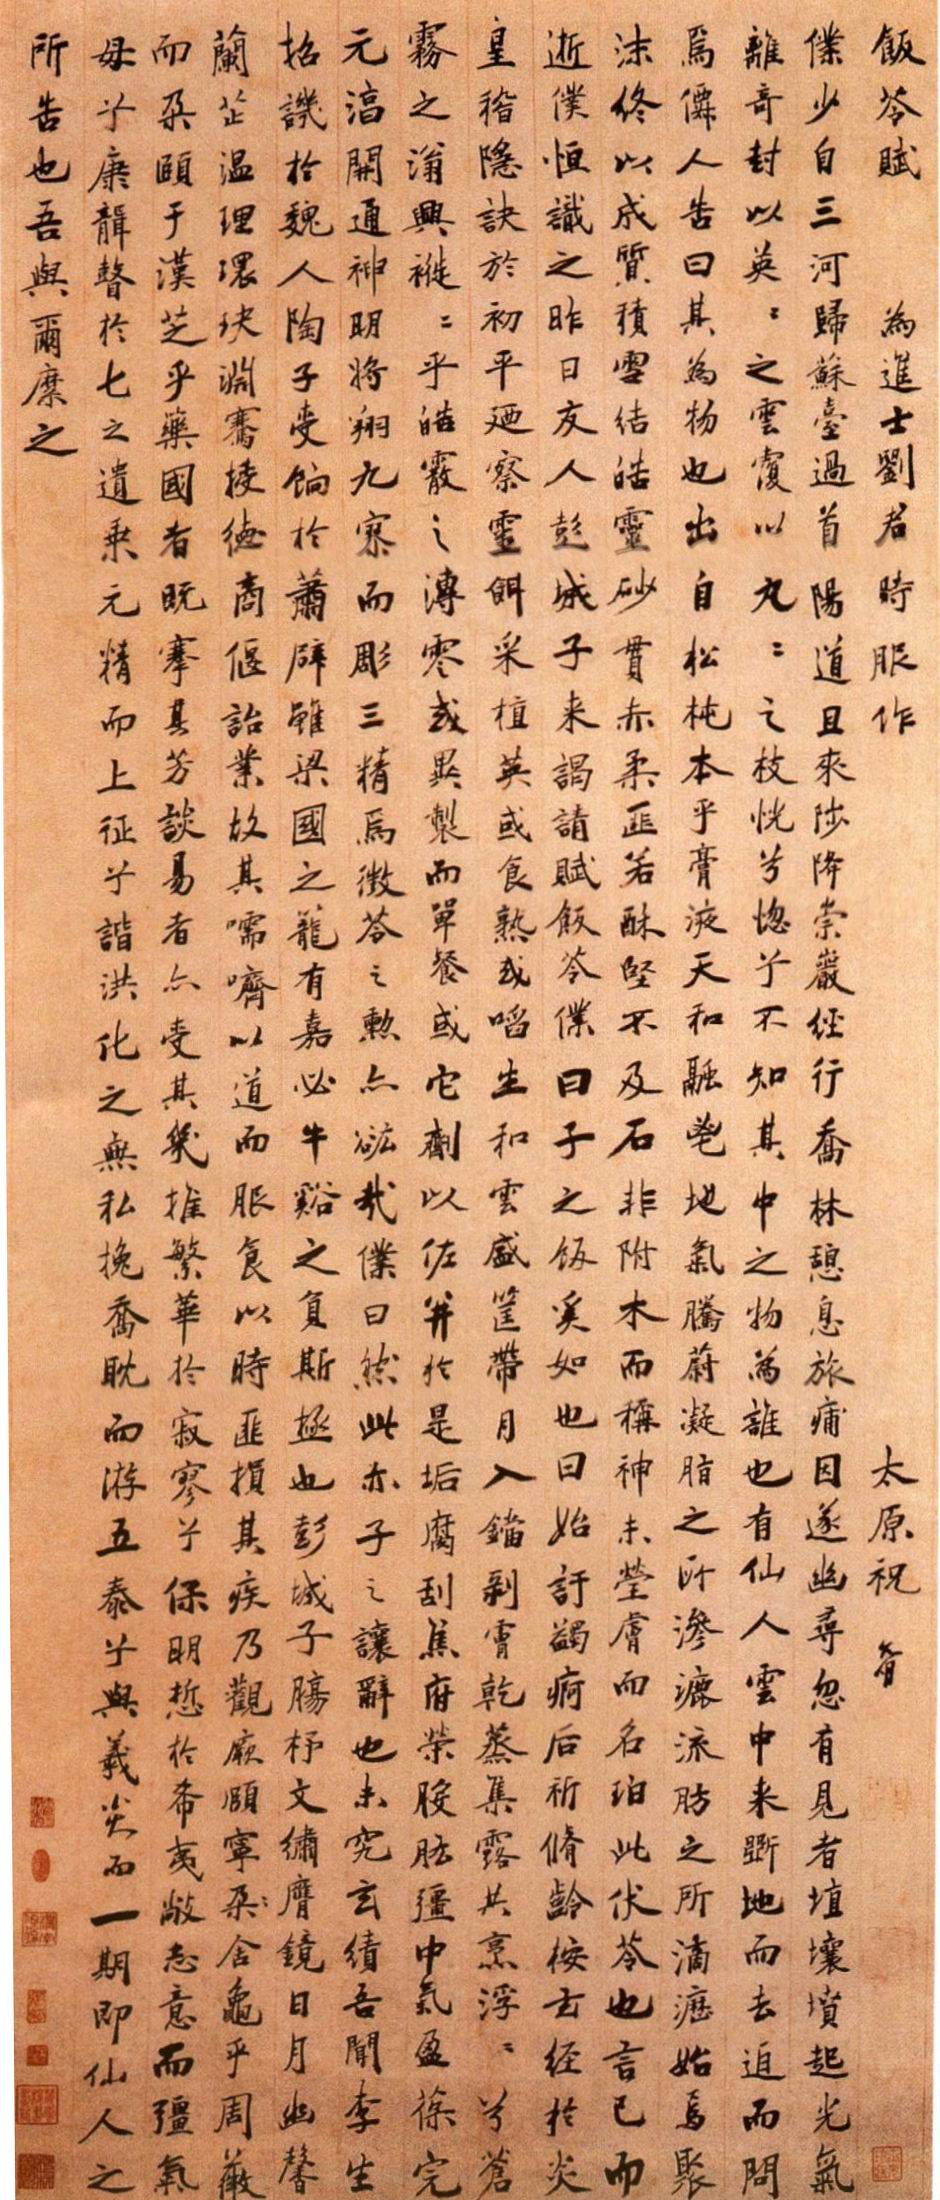 飯苓賦 為進士劉君時服作 太原祝
僕少自三河歸蘇臺過首陽道且來陟降崇巖經行喬林憩息旅痡因遂幽尋忽有見者埴壤墳起光氣
離奇封以英〻之雲覆以丸〻之枝恍兮惚兮不知其中之物為誰也有仙人雲中来斲地而去追而問
焉僊人告曰其為物也出自松杶本乎膏液天和融鬯地氣騰蔚凝脂之所滲漉流肪之所滴瀝始焉聚
沫終以成質積雪結皓靈砂貫赤柔匪若酥堅不及石非附木而稱神未瑩膚而名珀此伏苓也言已而
逝僕恒識之昨日友人彭城子来謁請賦飯苓僕曰子之飯奚如也曰始訏蠲痾后祈脩齡桉古経於炎
皇稽隱訣於初平廼察靈餌采植英或食熟或啗生和雲盛筐帶月入鐺剝膚乾蒸集露共烹浮〻兮蒼
霧之滃興褷〻乎皓霰之漙零或異製而單餐或它劑以佐并於是垢腐刮焦府荣腠胠彊中氣盈葆完
元滈開通神明将翔九寨而彫三精焉微苓之勲亦竑哉僕曰然此亦子之讓辭也未究玄績吾聞李生
招譏於魏人陶子受餉於蕭辟雖梁國之籠有嘉必牛谿之負斯拯也彭城子腸杼文繡膺鏡日月幽馨
蘭芷温理瓌玦淵騫捷德商偃詒業故其嚅嚌以道而服食以時匪損其疾乃觀厥頤寧朶〻舍龜乎周薇
而朶頤于漢芝乎藥國者既搴其芳談易者亦受其幾推繁華於寂寥兮保明悊於希夷敞志意而彊氣
毋兮康韻聲於七之遺乗元精而上征兮諧洪化之無私挽喬耽而游五泰兮與羲炎而一期即仙人之
所告也吾與爾縻之